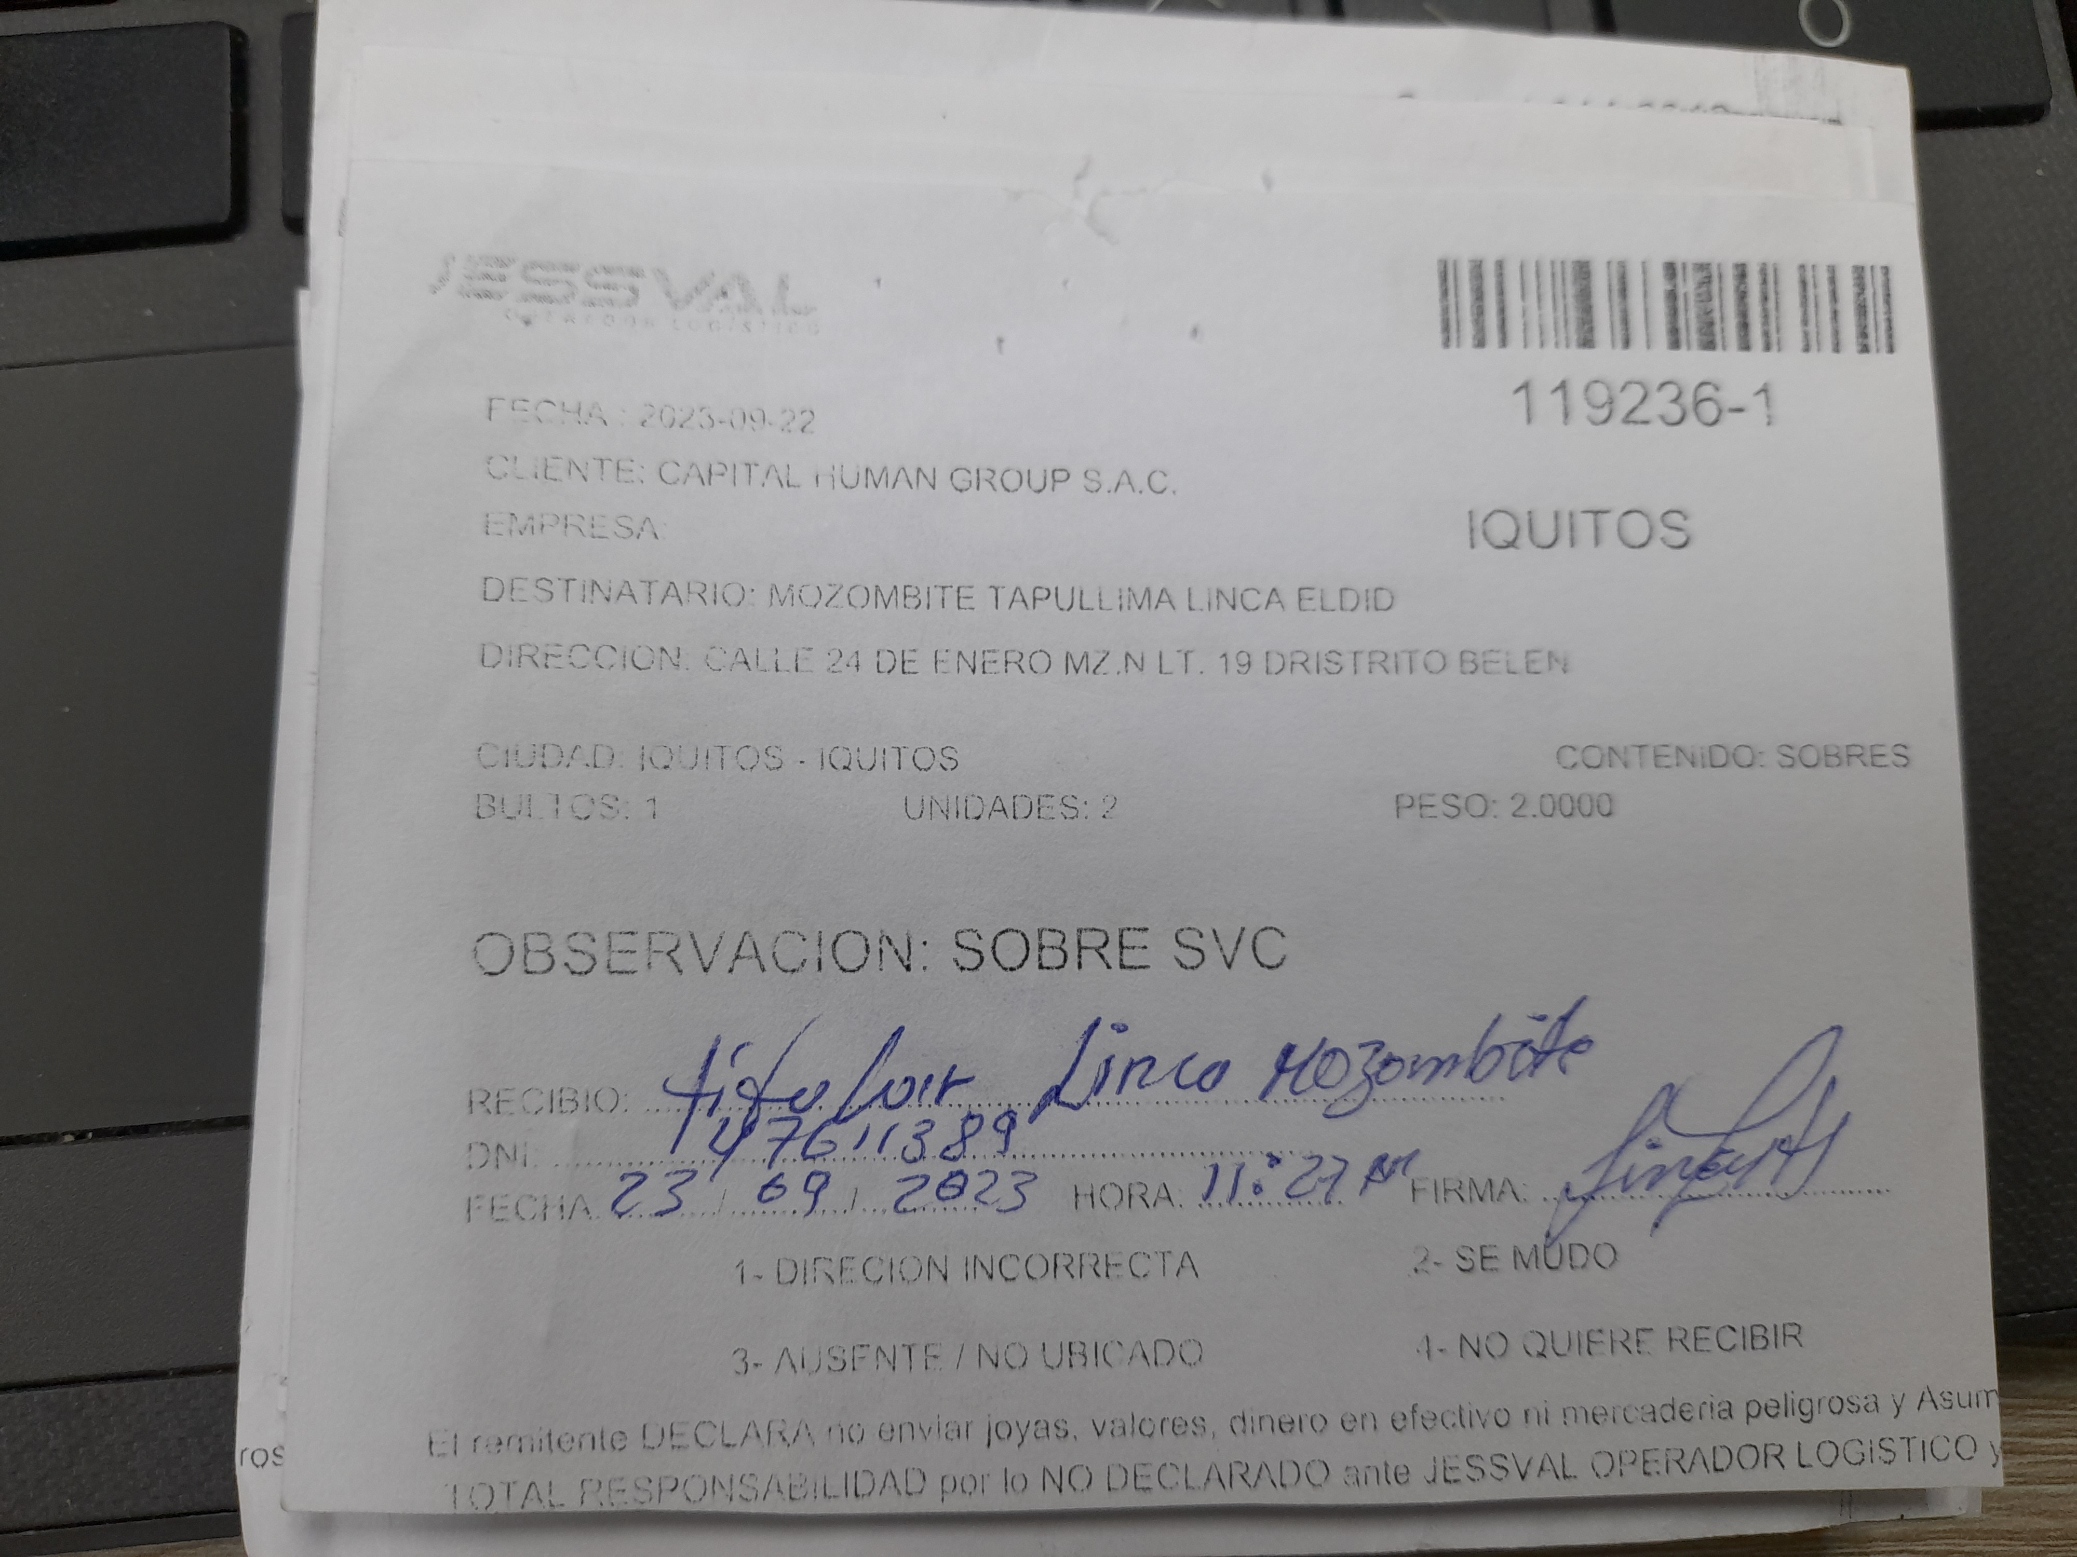 JESSVAL
OPERADOR LOGISTICO
119236-1
FECHA : 2023-09-22
CLIENTE: CAPITAL HUMAN GROUP S.A.C.
EMPRESA: IQUITOS
DESTINATARIO: MOZOMBITE TAPULLIMA LINCA ELDID
DIRECCION: CALLE 24 DE ENERO MZ.N LT. 19 DRISTRITO BELEN
CIUDAD: IQUITOS - IQUITOS CONTENIDO: SOBRES
BULTOS: 1 UNIDADES: 2 PESO: 2.0000
OBSERVACION: SOBRE SVC
RECIBIO: Linca Mozombite
DNI:
FECHA: 23 / 09 / 2023 HORA: 11:27 am FIRMA:
1- DIRECION INCORRECTA 2- SE MUDO
3- AUSENTE / NO UBICADO 4- NO QUIERE RECIBIR
El remitente DECLARA no enviar joyas, valores, dinero en efectivo ni mercaderia peligrosa y Asum
TOTAL RESPONSABILIDAD por lo NO DECLARADO ante JESSVAL OPERADOR LOGISTICO y
ros